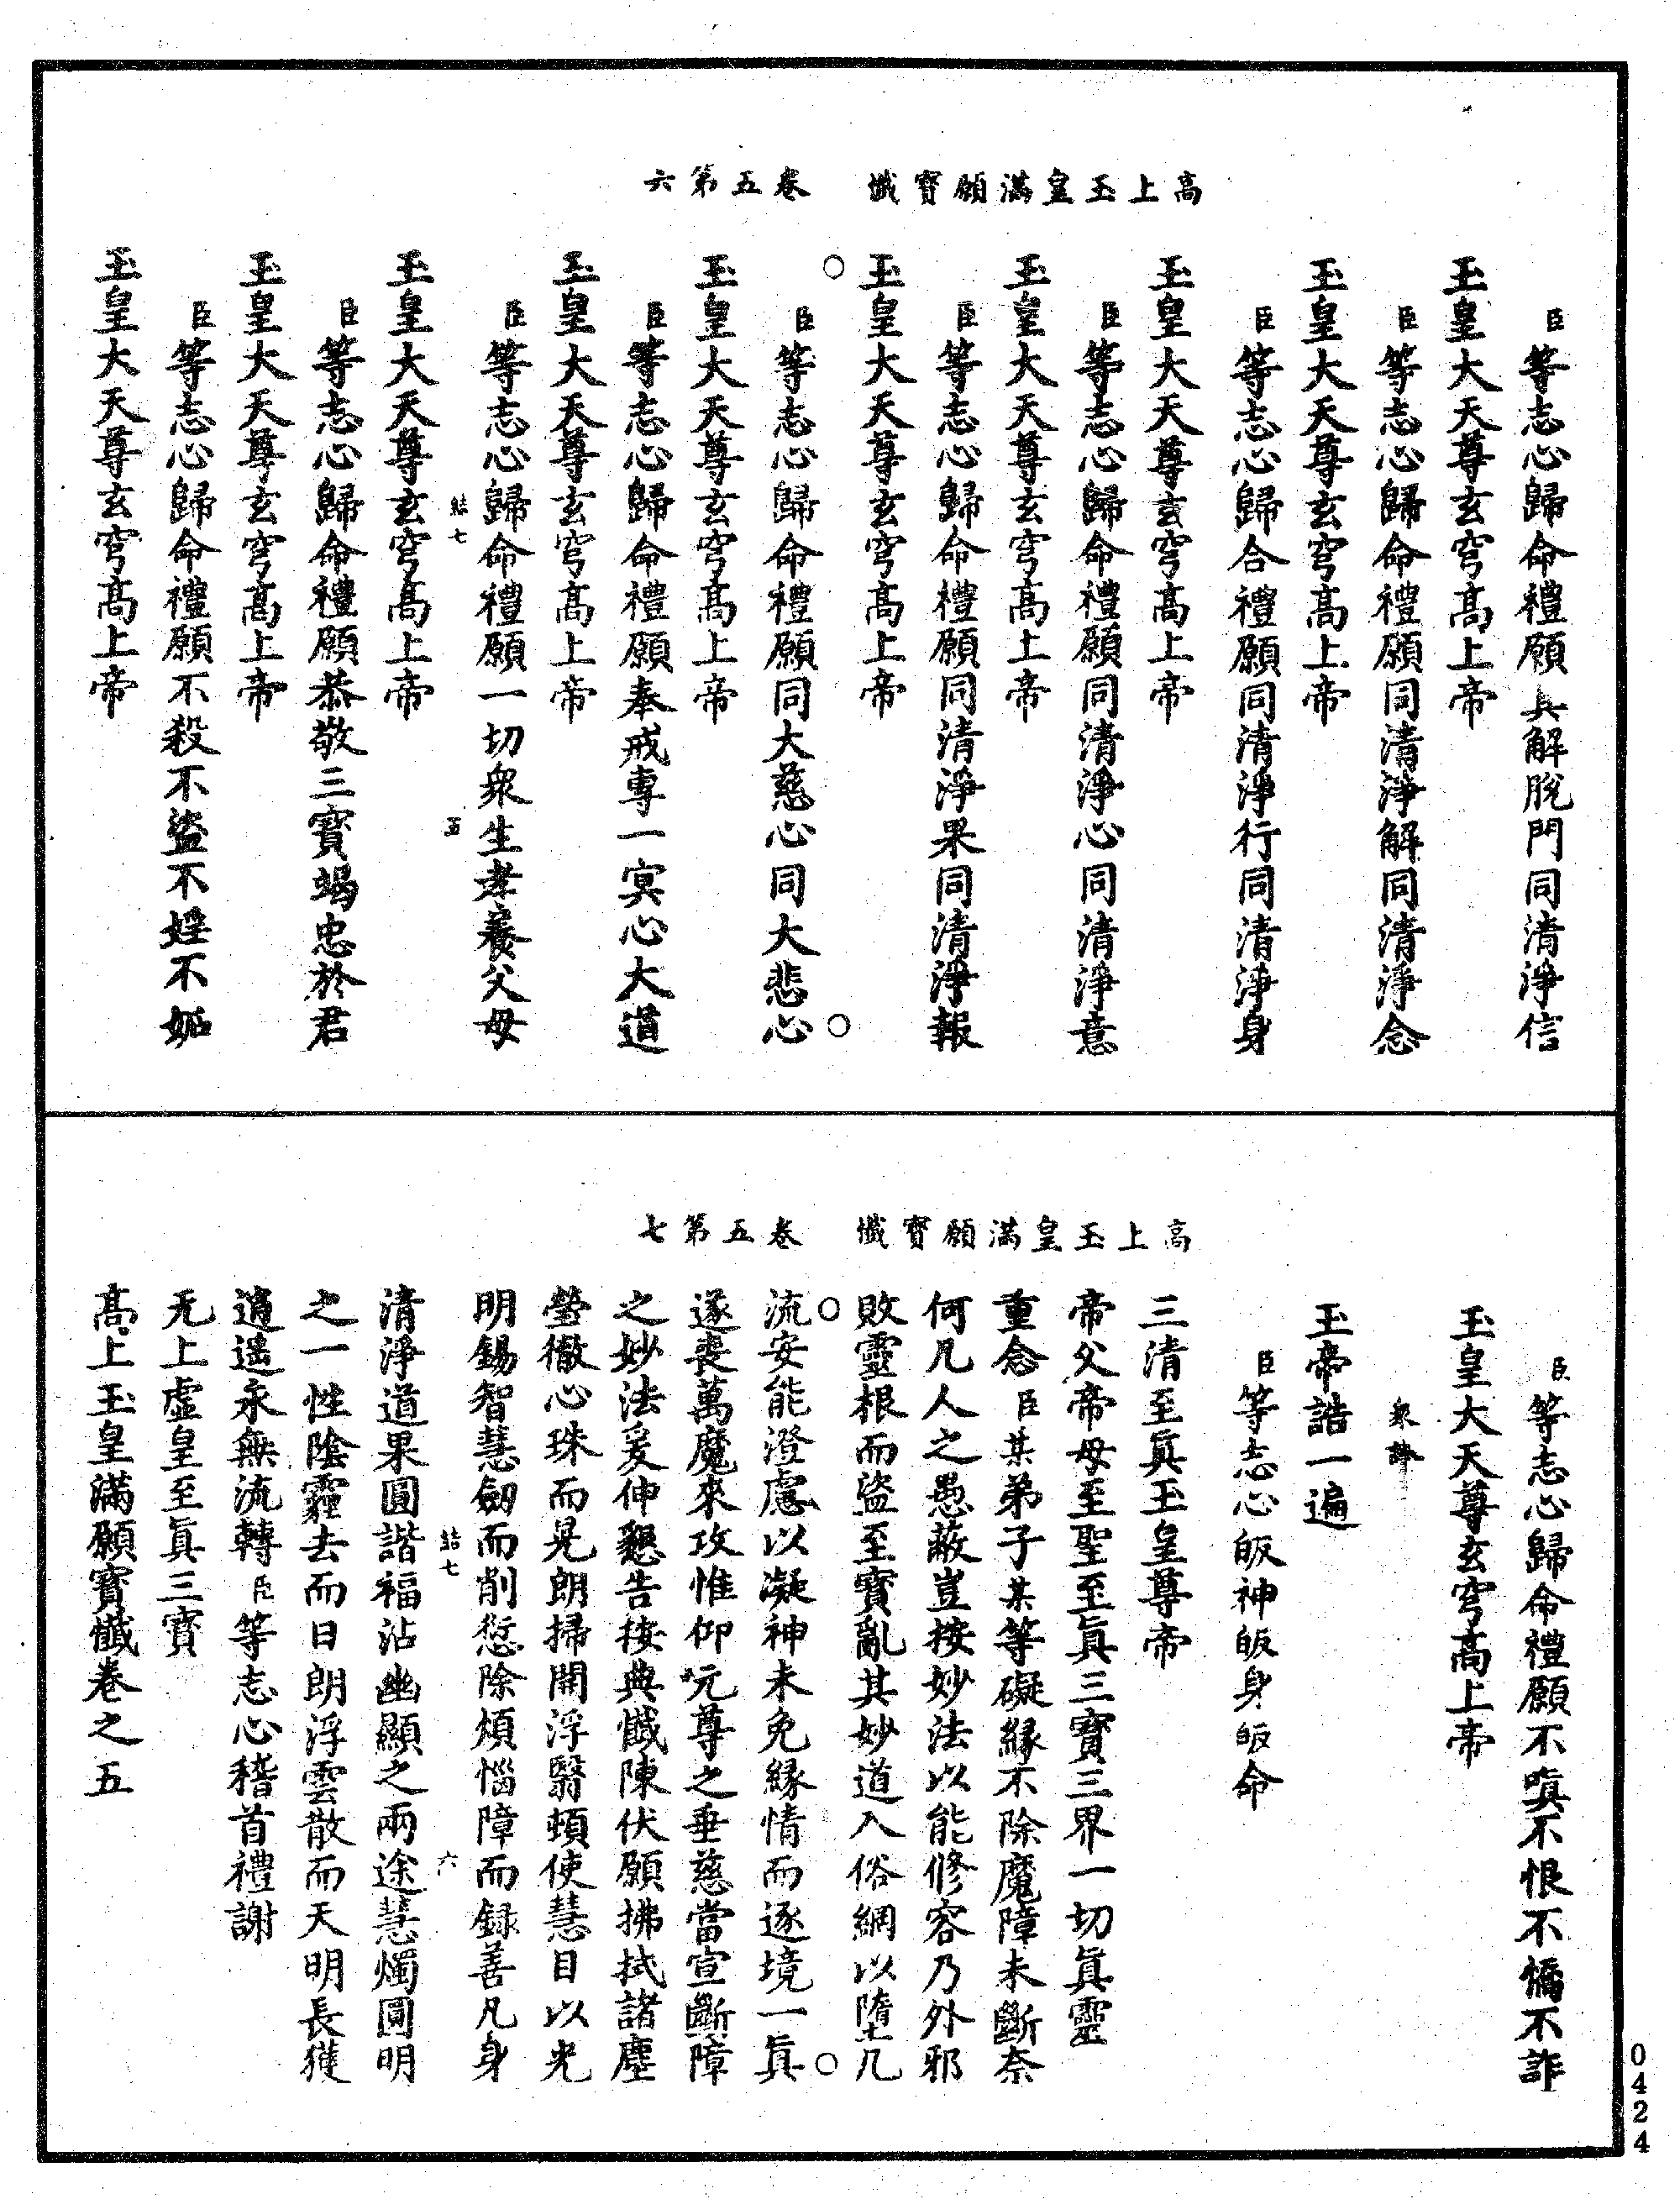 高上玉皇滿願寶懺　卷五第六
臣等志心歸命禮願具解脫門同清淨信
玉皇大天尊玄穹高上帝
臣等志心歸命禮願同清淨解同清淨念
玉皇大天尊玄穹高上帝
臣等志心歸合禮願同清淨行同清淨身
玉皇大天尊玄穹高上帝
臣等志心歸命禮願同清淨心同清淨意
玉皇大天尊玄穹高上帝
臣等志心歸命禮願同清淨果同清淨報
玉皇大天尊玄穹高上帝
臣等志心歸命禮願同大慈心同大悲心
玉皇大天尊玄穹高上帝
臣等志心歸命禮願奉戒專一寞心大道
玉皇大天尊玄穹高上帝
臣等志心歸命禮願一切衆生孝養父母
結七　五
玉皇大天尊玄穹高上帝
臣等志心歸命禮願恭敬三寶竭忠於君
玉皇大天尊玄穹高上帝
臣等志心歸命禮願不殺不盜不婬不妬
玉皇大天尊玄穹高上帝
高上玉皇滿願寶懺　卷五第七
臣等志心歸命禮願不嗔不恨不憍不詐
玉皇大天尊玄穹高上帝
衆誦
玉帝誥一遍
臣等志心皈神皈身皈命
三清至眞玉皇尊帝
帝父帝母至聖至眞三寶三界一切眞靈
重念臣某弟子某等礙緣不除魔障未斷奈
何凡人之愚蔽豈按妙法以能修容乃外邪
敗靈根而盜至寶亂其妙道入俗網以墮凡
流安能澄慮以凝神未免緣情而逐境一眞
遂喪萬魔來攻惟仰元尊之垂慈當宣斷障
之妙法爰伸懇告按典懺陳伏願拂拭諸塵
瑩徹心珠而晃朗掃開浮翳頓使慧目以光
明錫智慧劒而削愆除煩惱障而録善凡身
結七　六
清淨道果圓諧福沾幽顯之兩途慧燭圓明
之一性陰霾去而日朗浮雲散而天明長獲
逍遥永無流轉臣等志心稽首禮謝
无上虛皇至眞三寶
高上玉皇滿願寶懺卷之五
0424